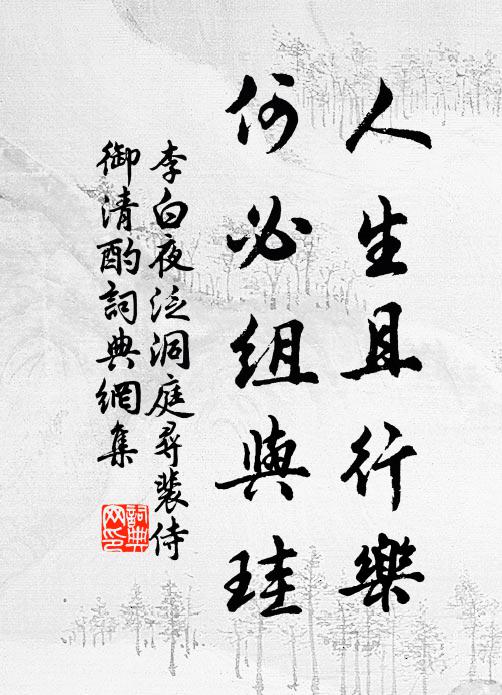 人生且行樂
何必組與珪
李白夜泛洞庭尋裴侍
御清酌詞典網集
詞典
网印